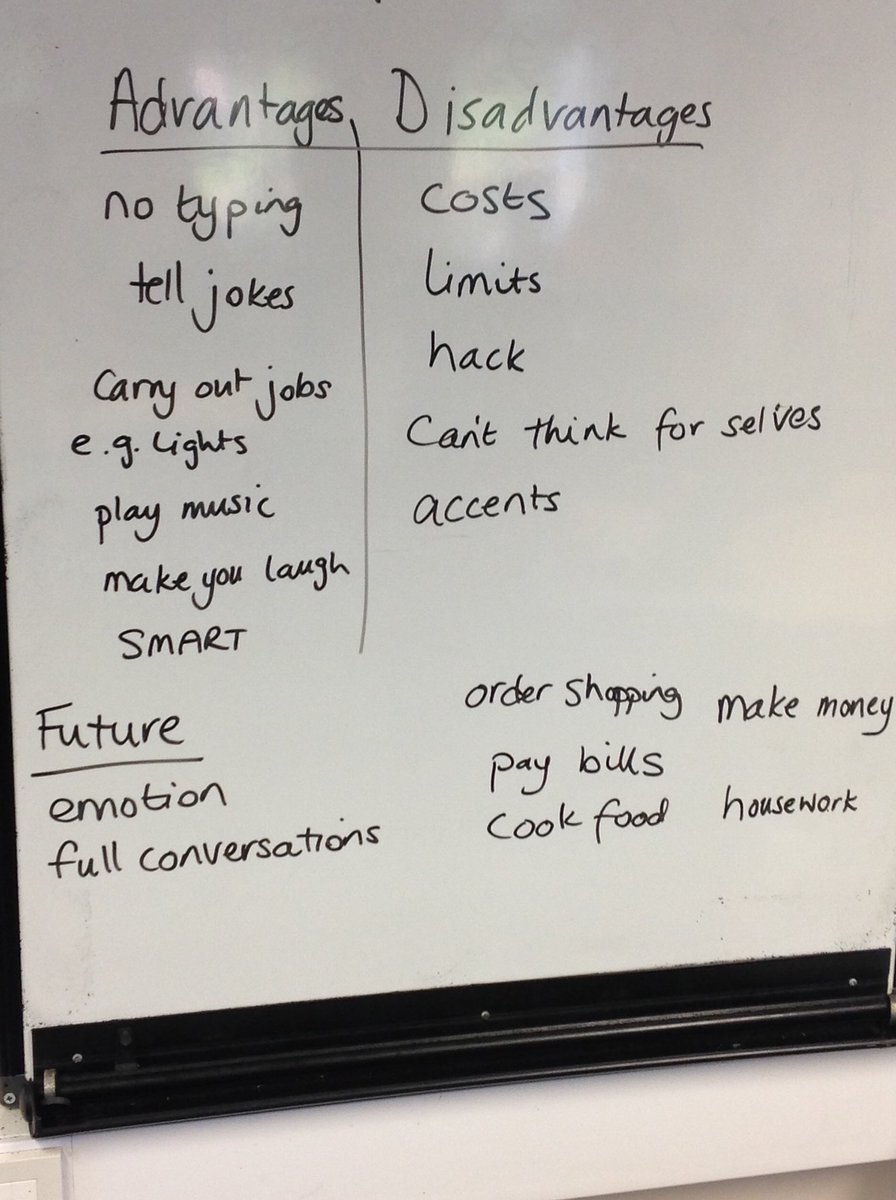 Advantages Disadvantages
no typing
tell jokes
Carry out jobs
e.g. Lights
play music
make you laugh
SMART
costs
limits
hack
Can't think for selves
accents
Future
emotion
full conversations
order shopping make money
pay bills
cook food housework